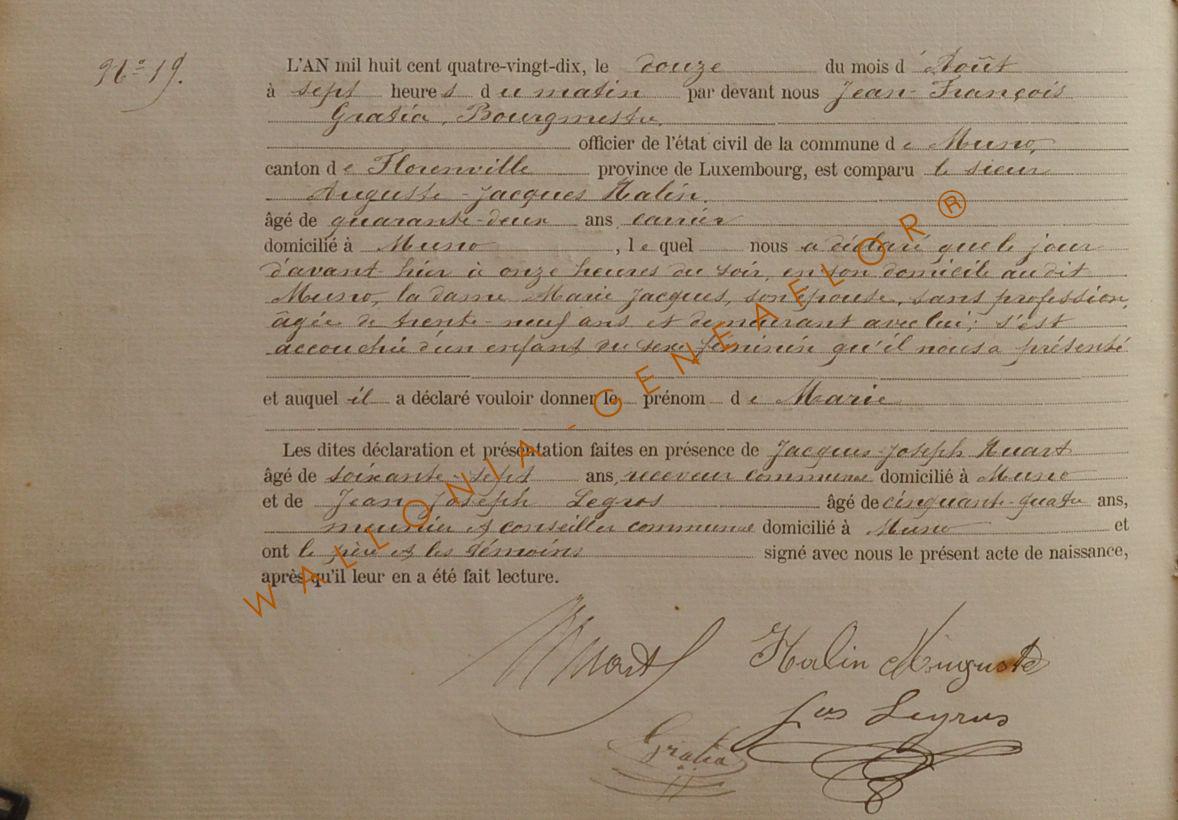 N° 19.
L'AN mil huit cent quatre-vingt-dix, le douze du mois d'Août
à sept heures du matin par devant nous Jean-François
Gratia, Bourgmestre
officier de l'état civil de la commune de Muno,
canton de Florenville province de Luxembourg, est comparu le sieur
Auguste-Jacques Halin,
âgé de quarante-deux ans carrier
domicilié à Muno, lequel nous a déclaré que le jour
d'avant-hier à onze heures du soir, en son domicile audit
Muno, la dame Marie Jacques, son épouse, sans profession,
âgée de trente-neuf ans et demeurant avec lui; s'est
accouchée d'un enfant du sexe féminin qu'il nous a présenté
et auquel il a déclaré vouloir donner le prénom de Marie
Les dites déclaration et présentation faites en présence de Jacques-Joseph Huart
âgé de soixante-sept ans, receveur communal domicilié à Muno
et de Jean Joseph Legros âgé de cinquante-quatre ans,
meunier et conseiller communal domicilié à Muno et
ont le père et les témoins signé avec nous le présent acte de naissance,
après qu'il leur en a été fait lecture.
Huart Halin Auguste
Jos Legros
Gratia
WALLONIA-GENEAFLOR®